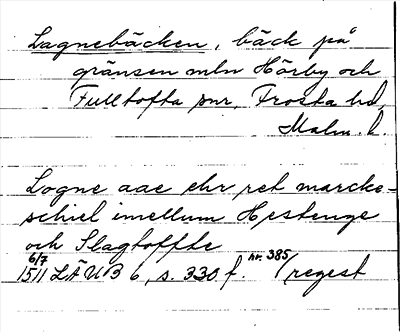 Lagnebäcken, bäck på
gränsen mln Hörby och
Fulltofta snr, Frosta hd,
Malm. l.
Logne aae ehr ret marcke-
schiel imellum Hestenge
och Slagtoffte
6/7 1511 LÄUB 6, s. 330 f. nr. 385 (regest